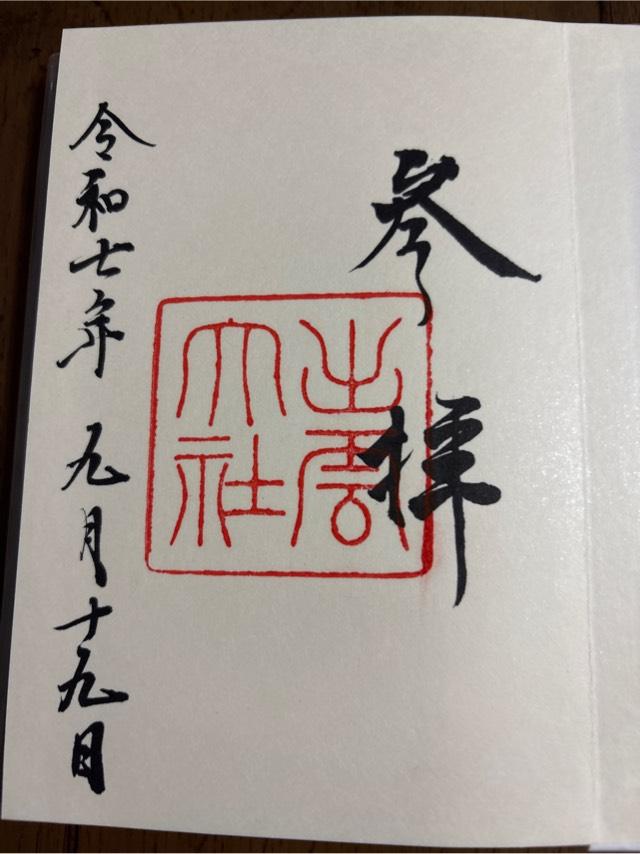 参拝
出雲
大社
令和七年 九月十九日